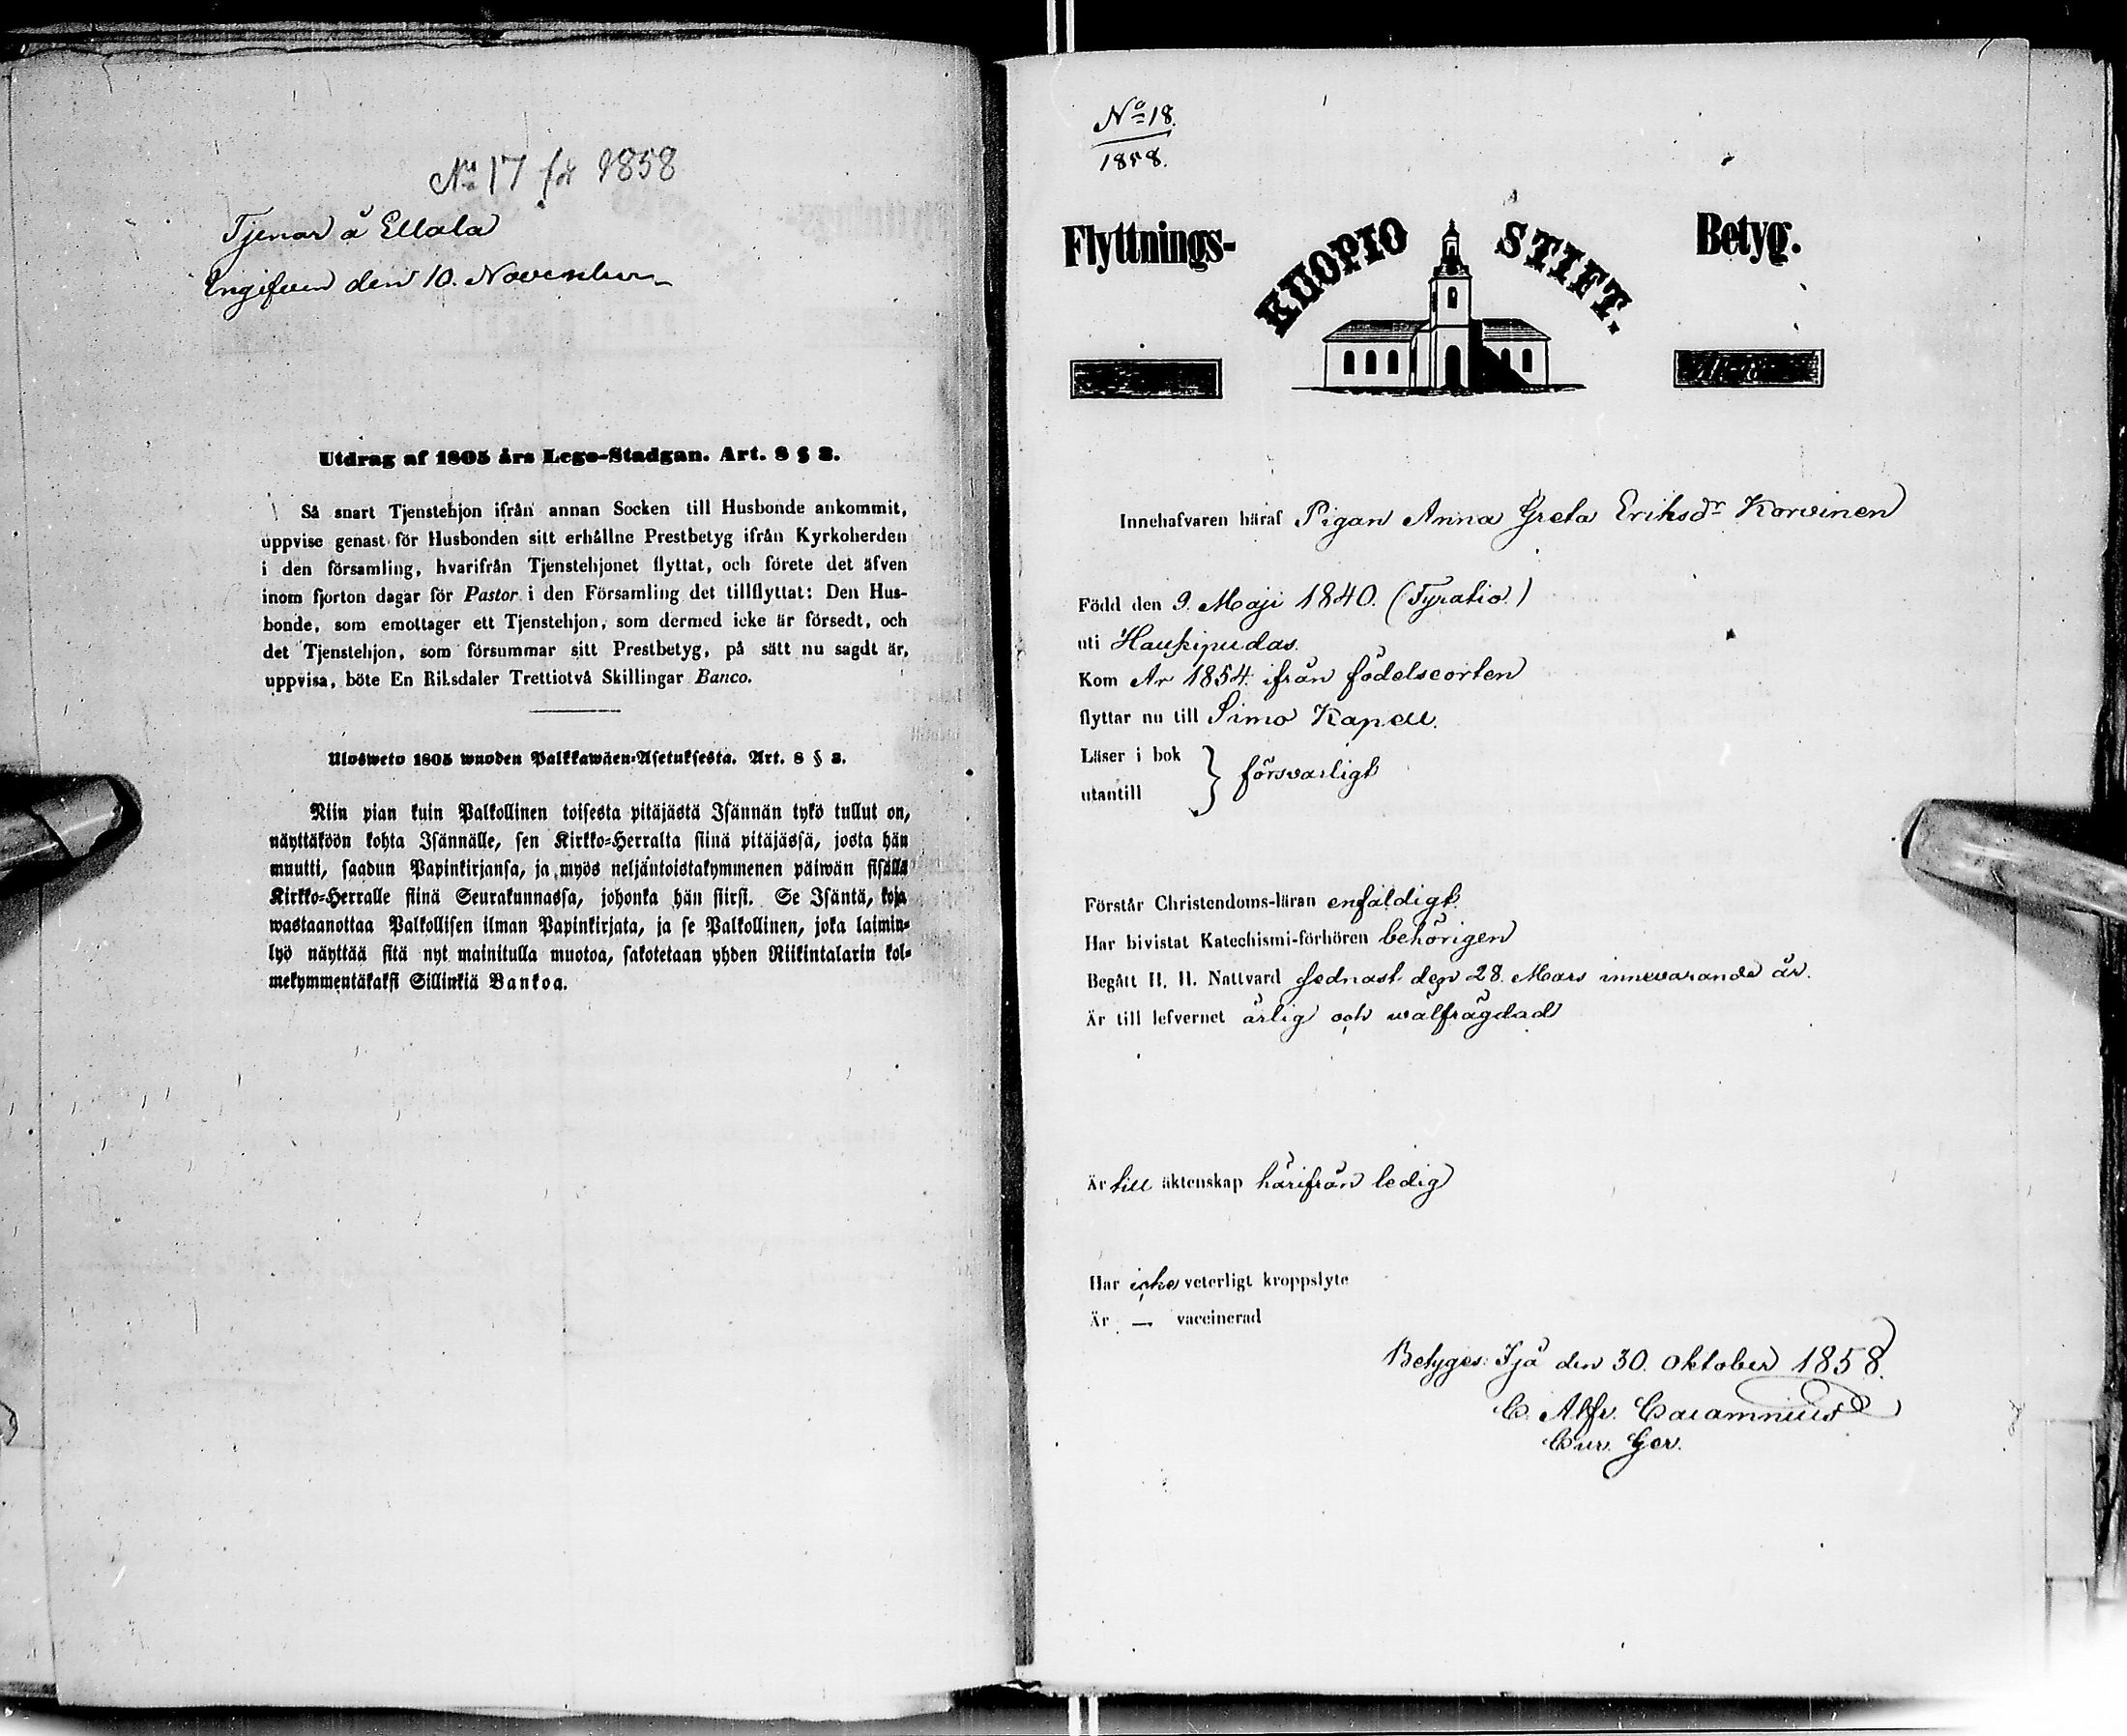 No 17 för 1858
Tjenar å Ellala
Ingifven den 10. November
Utdrag af 1805 års Lego-Stadgan. Art. 8 § 3.
Så snart Tjenstehjon ifrån annan Socken till Husbonde ankommit,
uppvise genast för Husbonden sitt erhållne Prestbetyg ifrån Kyrkoherden
i den församling, hvarifrån Tjenstehjonet flyttat, och förete det äfven
inom fjorton dagar för Pastor i den Församling det tillflyttat: Den Hus-
bonde, som emottager ett Tjenstehjon, som dermed icke är försedt, och
det Tjenstehjon, som försummar sitt Prestbetyg, på sätt nu sagdt är,
uppvisa, böte En Riksdaler Trettiotvå Skillingar Banco.
Ulosweto 1805 wuoden Palkkawäen-Asetuksesta. Art. 8 § 3.
Niin pian kuin Palkollinen toisesta pitäjästä Isännän tykö tullut on,
näyttäköön kohta Isännälle, sen Kirkko-Herralta siinä pitäjässä, josta hän
muutti, saadun Papinkirjansa, ja myös neljäntoistakymmenen päiwän sisällä
Kirkko-Herralle siinä Seurakunnassa, johonka hän siirsi. Se Isäntä, koja
wastaanottaa Palkollisen ilman Papinkirjata, ja se Palkollinen, joka laimin-
lyö näyttää sitä nyt mainitulla muotoa, sakotetaan yhden Riikintalarin kol-
mekymmentäkaksi Sillinkiä Bankoa.
No 18.
1858.
Flyttnings- KUOPIO STIFT. Betyg.
Innehafvaren häraf Pigan Anna Greta Eriksdr Korvinen
Född den 9. Maji 1840. (Tyratio.)
uti Haukipudas.
Kom År 1854. ifrån födelseorten
flyttar nu till Simo Kapell.
Läser i bok } försvarligt
utantill
Förstår Christendoms-läran enfaldigt.
Har bivistat Katechismi-förhören behörigen
Begått H. H. Nattvard sednast den 28. Mars innevarande år.
Är till lefvernet ärlig och wälfrägdad
Är till äktenskap härifrån ledig
Har icke veterligt kroppslyte
Är — vaccinerad
Betygas: Ijå den 30. Oktober 1858.
C. Alfr. Cajamnius
Cur. Ger.